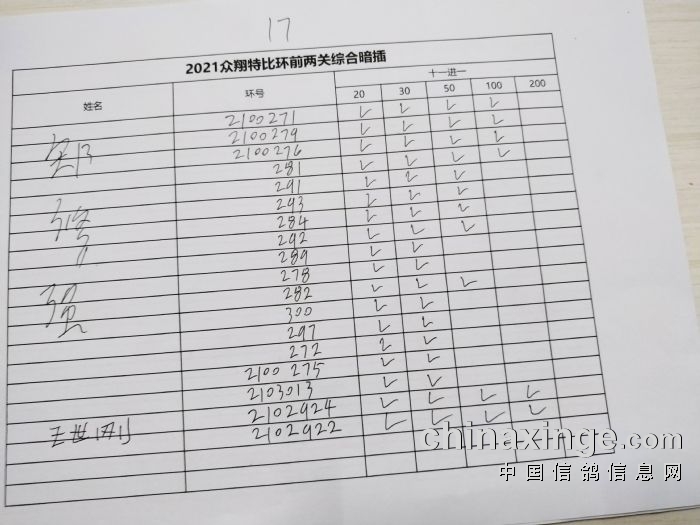 17
2021众翔特比环前两关综合暗插
姓名 环号 十一进一
20 30 50 100 200
2100271 ✓ ✓ ✓ ✓
2100279 ✓ ✓ ✓ ✓
2100276 ✓ ✓ ✓ ✓
281 ✓ ✓ ✓ ✓
291 ✓ ✓ ✓
293 ✓ ✓ ✓
284 ✓ ✓ ✓
292 ✓ ✓ ✓
289 ✓ ✓
278 ✓ ✓
282 ✓ ✓ ✓
300 ✓ ✓
297 ✓ ✓
272 ✓ ✓
2100275 ✓ ✓
2103013 ✓ ✓
2102924 ✓ ✓ ✓ ✓
王世刚 2102922 ✓ ✓ ✓ ✓
强
chinaxinge.com
中国信鸽信息网